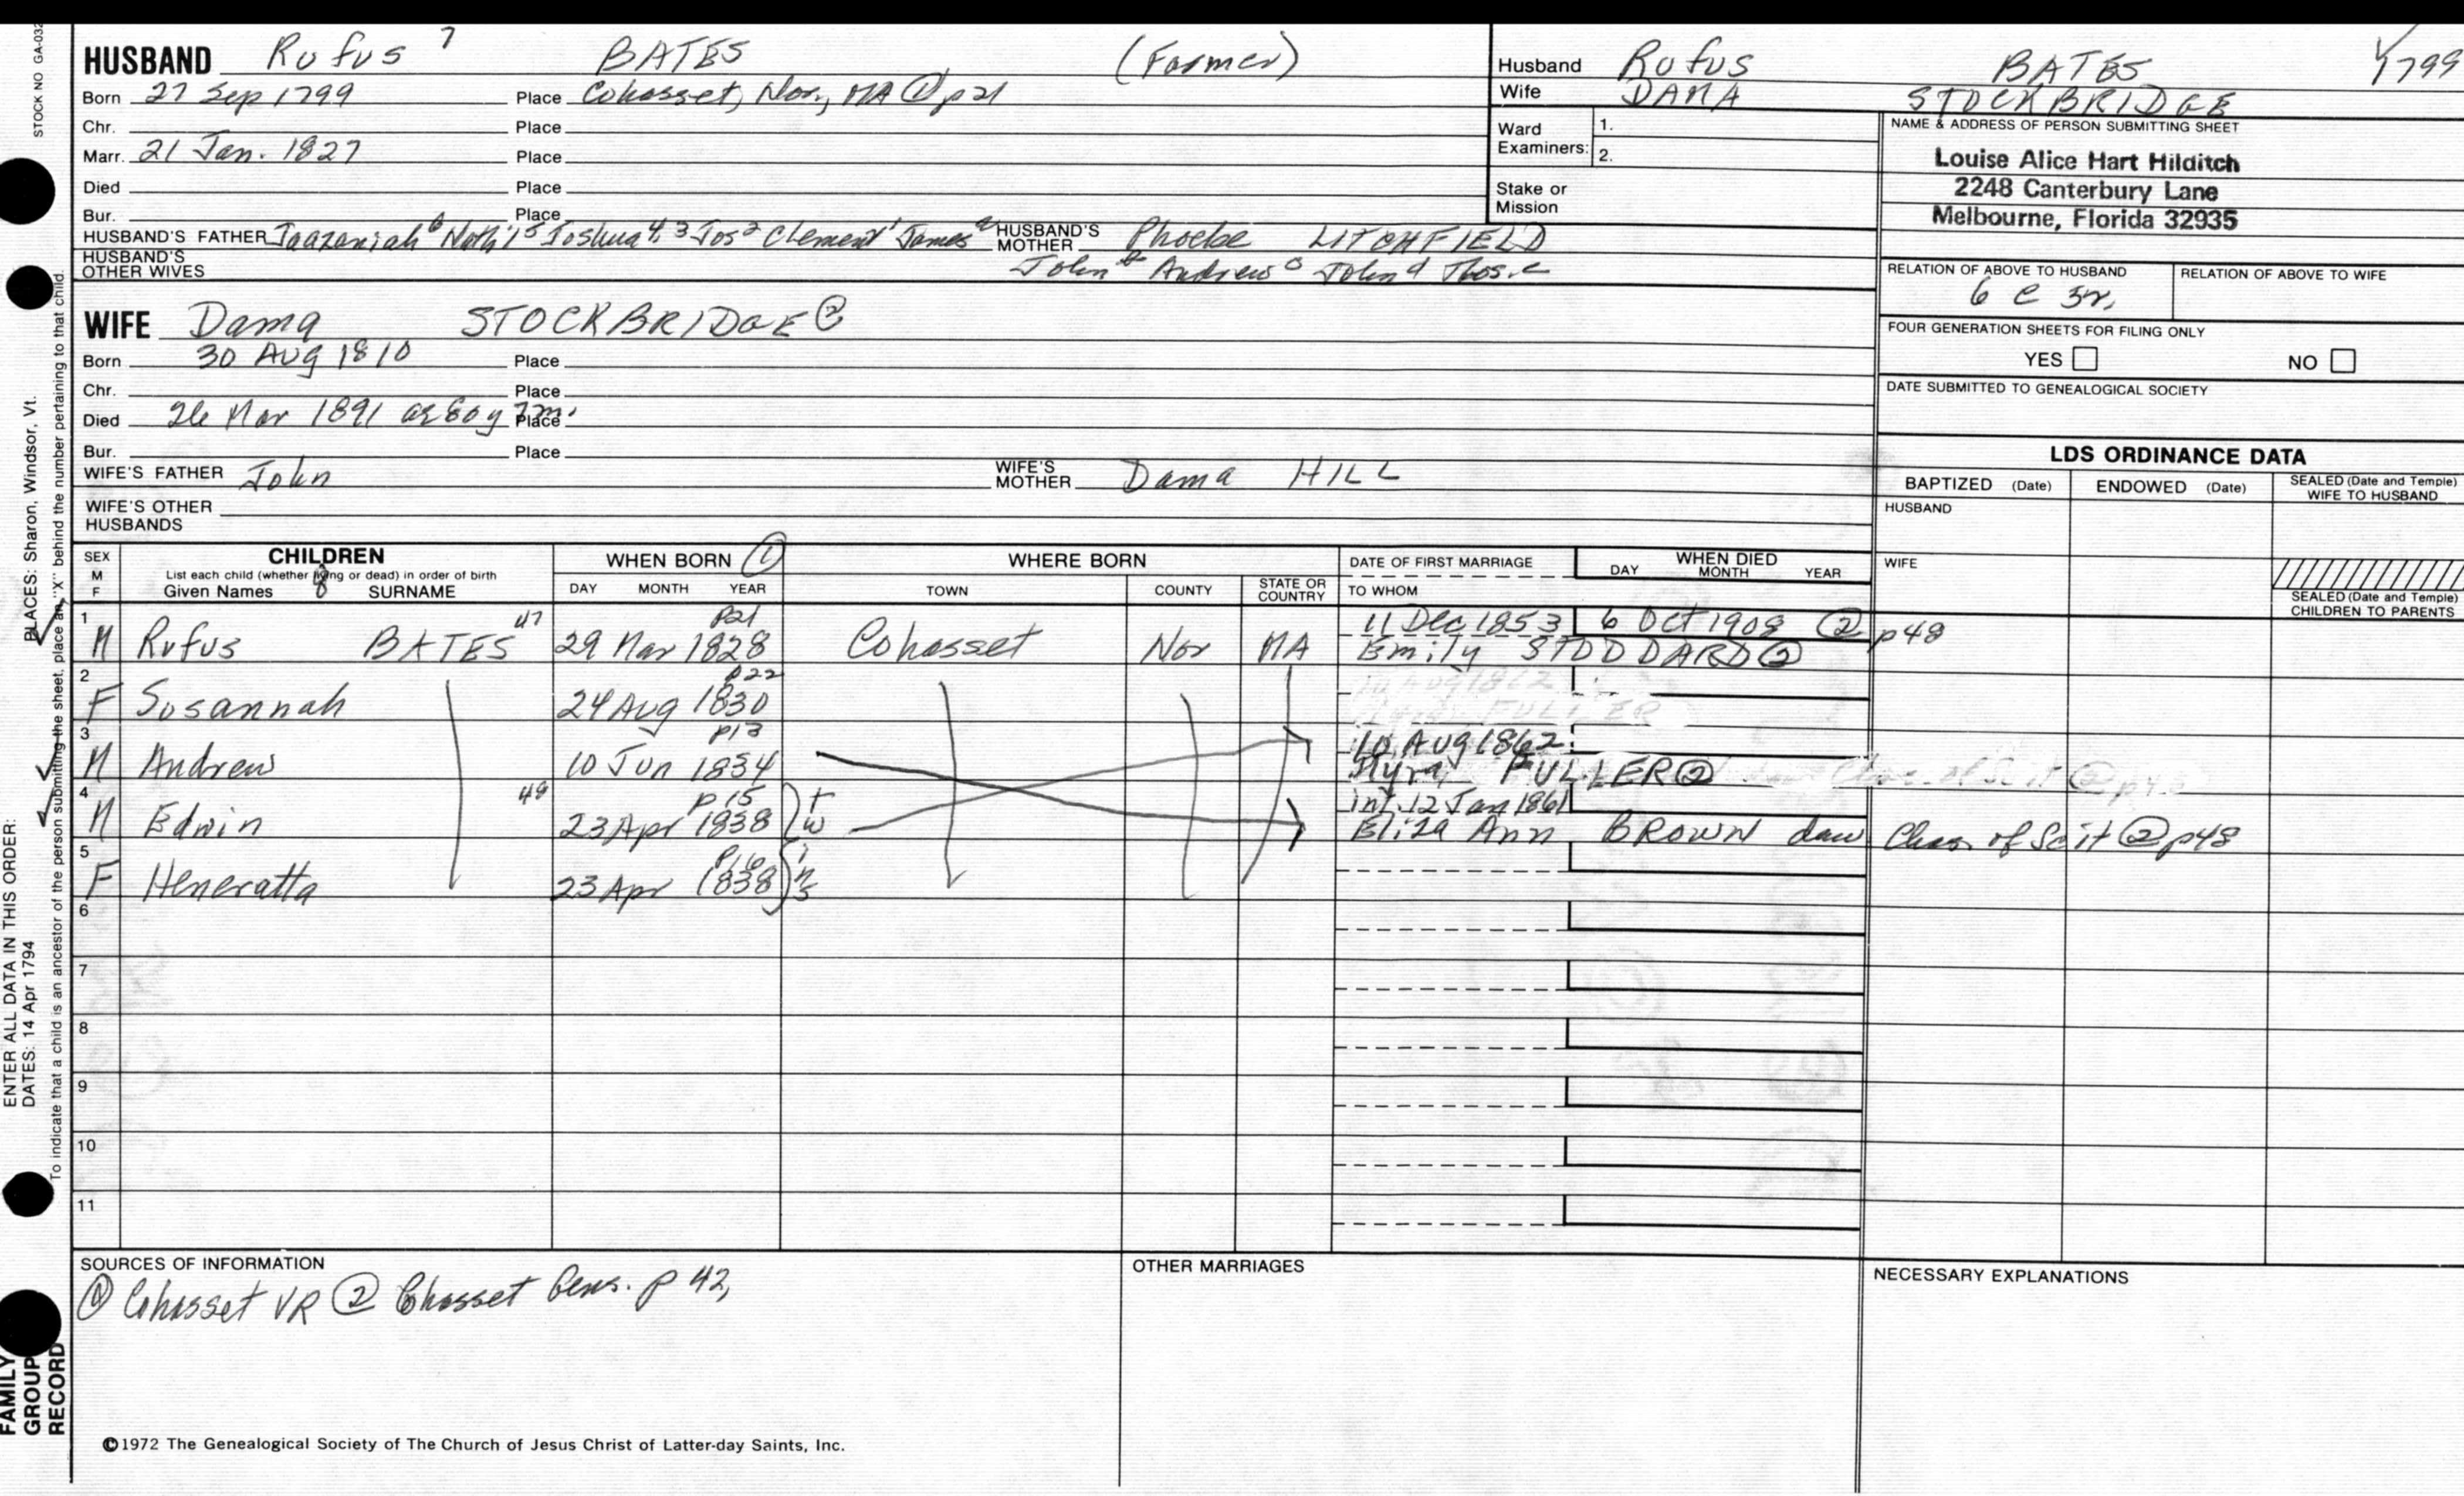 STOCK NO GA-032
HUSBAND Rufus 7 BATES (Farmer)
Born 27 Sep 1799 Place Cohasset, Nor, MA ① p21
Chr. Place
Marr. 21 Jan. 1827 Place
Died Place
Bur. Place
HUSBAND'S FATHER Jaazaniah 6 Nath'l 5 Joshua 4, 3 Jos 2 Clement 1 James a HUSBAND'S MOTHER Phoebe LITCHFIELD
HUSBAND'S OTHER WIVES John b Andrew c John d Thos. e
Husband Rufus BATES 1799
Wife DAMA STOCKBRIDGE
Ward Examiners: 1.
2.
Stake or Mission
NAME & ADDRESS OF PERSON SUBMITTING SHEET
Louise Alice Hart Hilditch
2248 Canterbury Lane
Melbourne, Florida 32935
RELATION OF ABOVE TO HUSBAND RELATION OF ABOVE TO WIFE
6 c 5r,
FOUR GENERATION SHEETS FOR FILING ONLY
YES NO
DATE SUBMITTED TO GENEALOGICAL SOCIETY
WIFE Dama STOCKBRIDGE ②
Born 30 Aug 1810 Place
Chr. Place
Died 26 Mar 1891 ae 80y 7m. Place
Bur. Place
WIFE'S FATHER John WIFE'S MOTHER Dama HILL
WIFE'S OTHER HUSBANDS
LDS ORDINANCE DATA
BAPTIZED (Date) ENDOWED (Date) SEALED (Date and Temple) WIFE TO HUSBAND
HUSBAND
WIFE
SEALED (Date and Temple) CHILDREN TO PARENTS
SEX M F
CHILDREN
List each child (whether living or dead) in order of birth
Given Names 8 SURNAME
WHEN BORN ①
DAY MONTH YEAR
WHERE BORN
TOWN COUNTY STATE OR COUNTRY
DATE OF FIRST MARRIAGE
TO WHOM
WHEN DIED
DAY MONTH YEAR
1 47 p21 11 Dec 1853 6 Oct 1908 ② p48
M Rufus BATES 29 Mar 1828 Cohasset Nor MA Emily STODDARD ②
2 p22
F Susannah 24 Aug 1830
3 p13 10 Aug 1862
M Andrew 10 Jun 1834 Myra FULLER ②
4 48 p15 int. 12 Jan 1861
M Edwin 23 Apr 1838 Eliza Ann BROWN dau Chas. of Scit ② p48
5 p16
F Heneratta 23 Apr 1838
twins
6
7
8
9
10
11
SOURCES OF INFORMATION
① Cohasset VR ② Cohasset Gens. p 42,
OTHER MARRIAGES
NECESSARY EXPLANATIONS
©1972 The Genealogical Society of The Church of Jesus Christ of Latter-day Saints, Inc.
ENTER ALL DATA IN THIS ORDER:
DATES: 14 Apr 1794
PLACES: Sharon, Windsor, Vt.
To indicate that a child is an ancestor of the person submitting the sheet, place an "X" behind the number pertaining to that child.
FAMILY
GROUP
RECORD